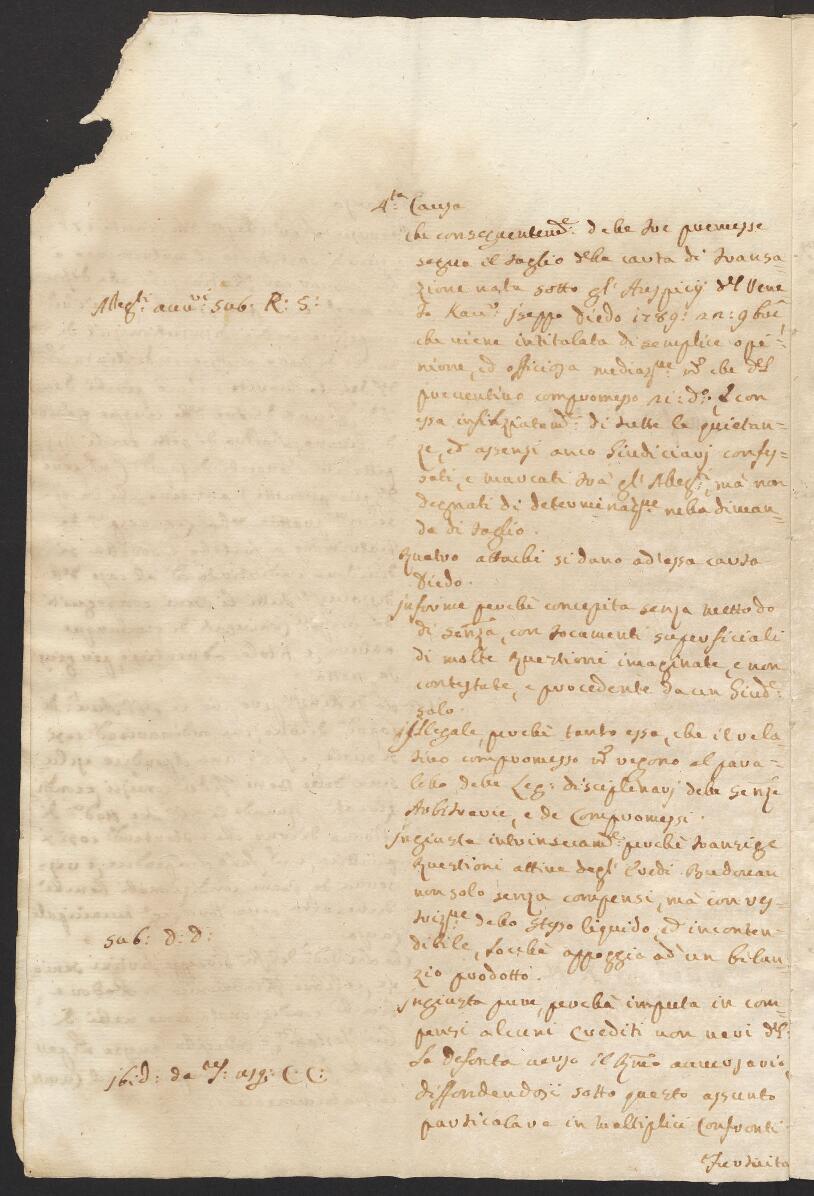 4.ta Causa
che conseguentem.e: dele tre premesse
segua il taglio dela carta di transa-
zione nata sotto gl' Auspicij del Vene
to Kau.r Iseppo Diedo 1789: 22: 9bre
Allegti auuri sub: R: S:
che viene intitolata di semplice opi-
nione, ed officiosa mediazne che del
preuentivo compromesso 21: do: con
essa di tutte le quietan-
ze, ed assensi anco Giudiciarj confes-
sati, e marcati trà gl' Alleg.ti, mà non
degnati di determinazne nella diman-
da di taglio.
Quatro attachi si dano ad essa carta
Diedo.
Informe perchè concepita senza mettodo
di senza, con tocamenti superficiali
di molte Questioni imaginate, e non
contestate, e procedente da un Giud.e
solo.
Illegale, perchè tanto essa, che il rela-
tivo compromesso non regono al para-
lelo dele Leg: disciplinarj dele Senze
Arbitrarie, e de Compromessi.
Ingiusta intrinsecam.e: perchè transige
Questioni attive degl' Eredi Badoeran
non solo senza compensi, mà con res-
trizne delo stesso liquido, ed inconten-
sub: D: D:
dibile, locchè appoggia ad un bilan-
zio prodotto.
Ingiusta pure, perchè imputa in com-
pensi alcuni Crediti non veri del-
la defonta verso il Rmo auuersario,
Ibid: de asg: C: C:
diffondendosi sotto questo assunto
particolare in molteplici Confronti